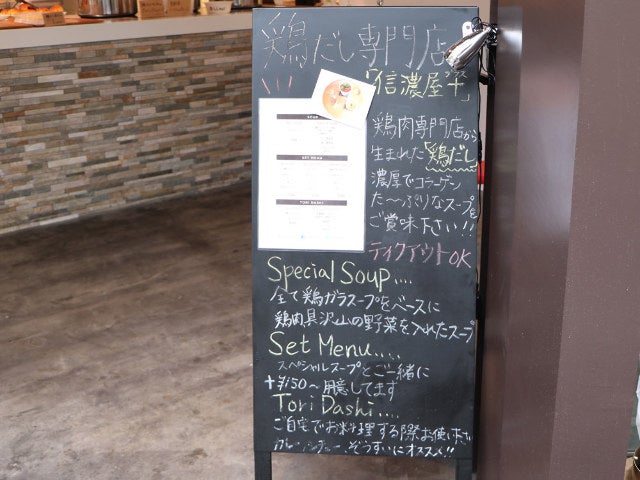 鶏だし専門店
「信濃屋半」
鶏肉専門店から
生まれた「鶏だし」
濃厚でコラーゲン
た〜っぷりなスープを
ご賞味下さい!!
テイクアウトOK
Special Soup....
全て鶏ガラスープをベースに
鶏肉具沢山の野菜を入れたスープ
Set Menu....
スペシャルスープとご一緒に
+¥150〜用意してます
Tori Dashi....
ご自宅でお料理する際お使い下さい
カレー、シチュー、ぞうすいにオススメ!!